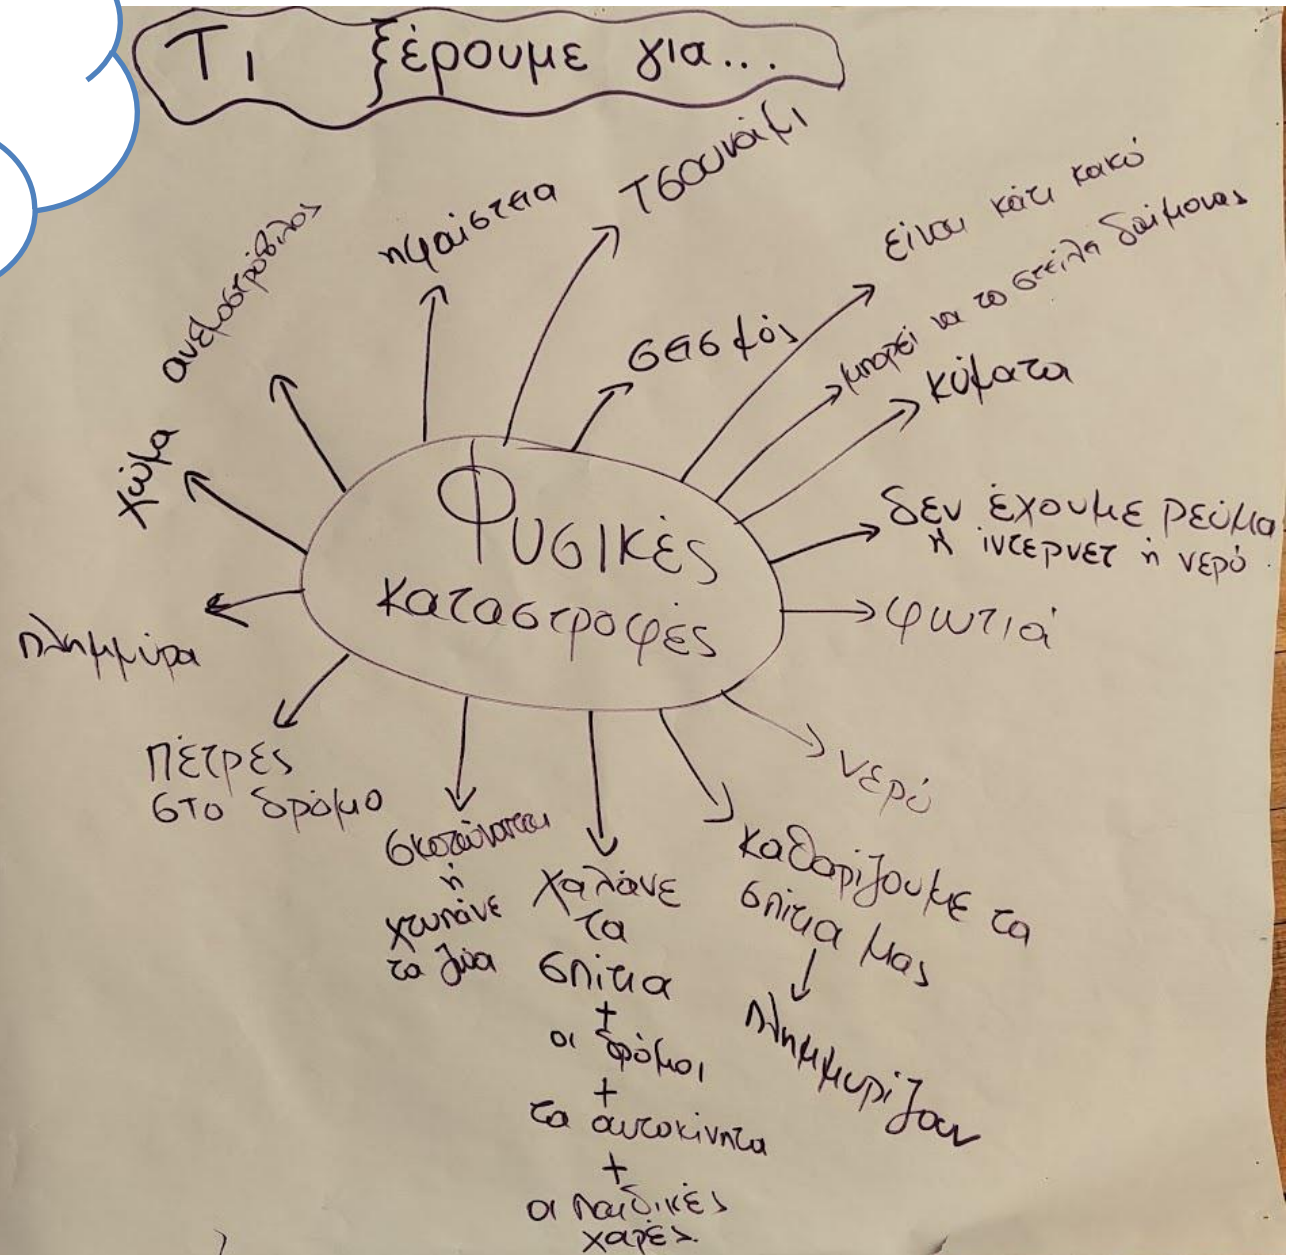 Τι ξέρουμε για...
Φυσικές
καταστροφές
χώμα
ανεμοστρόβιλος
ηφαίστεια
Τσουνάμι
σεισμός
είναι κάτι κακό
μπορεί να το στείλη δαίμονας
κύματα
δεν έχουμε ρεύμα
ή ίντερνετ ή νερό.
φωτιά
νερό
καθαρίζουμε τα
σπίτια μας
πλημμυρίζουν
χαλάνε
τα
σπίτια
+
οι δρόμοι
+
τα αυτοκίνητα
+
οι παιδικές
χαρές.
σκοτώνονται
ή
χτυπάνε
τα ζώα
πέτρες
στο δρόμο
πλημμύρα